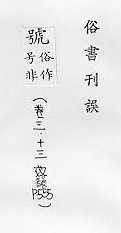 俗書刊誤
號俗作
号非
(卷三·十三
P555)